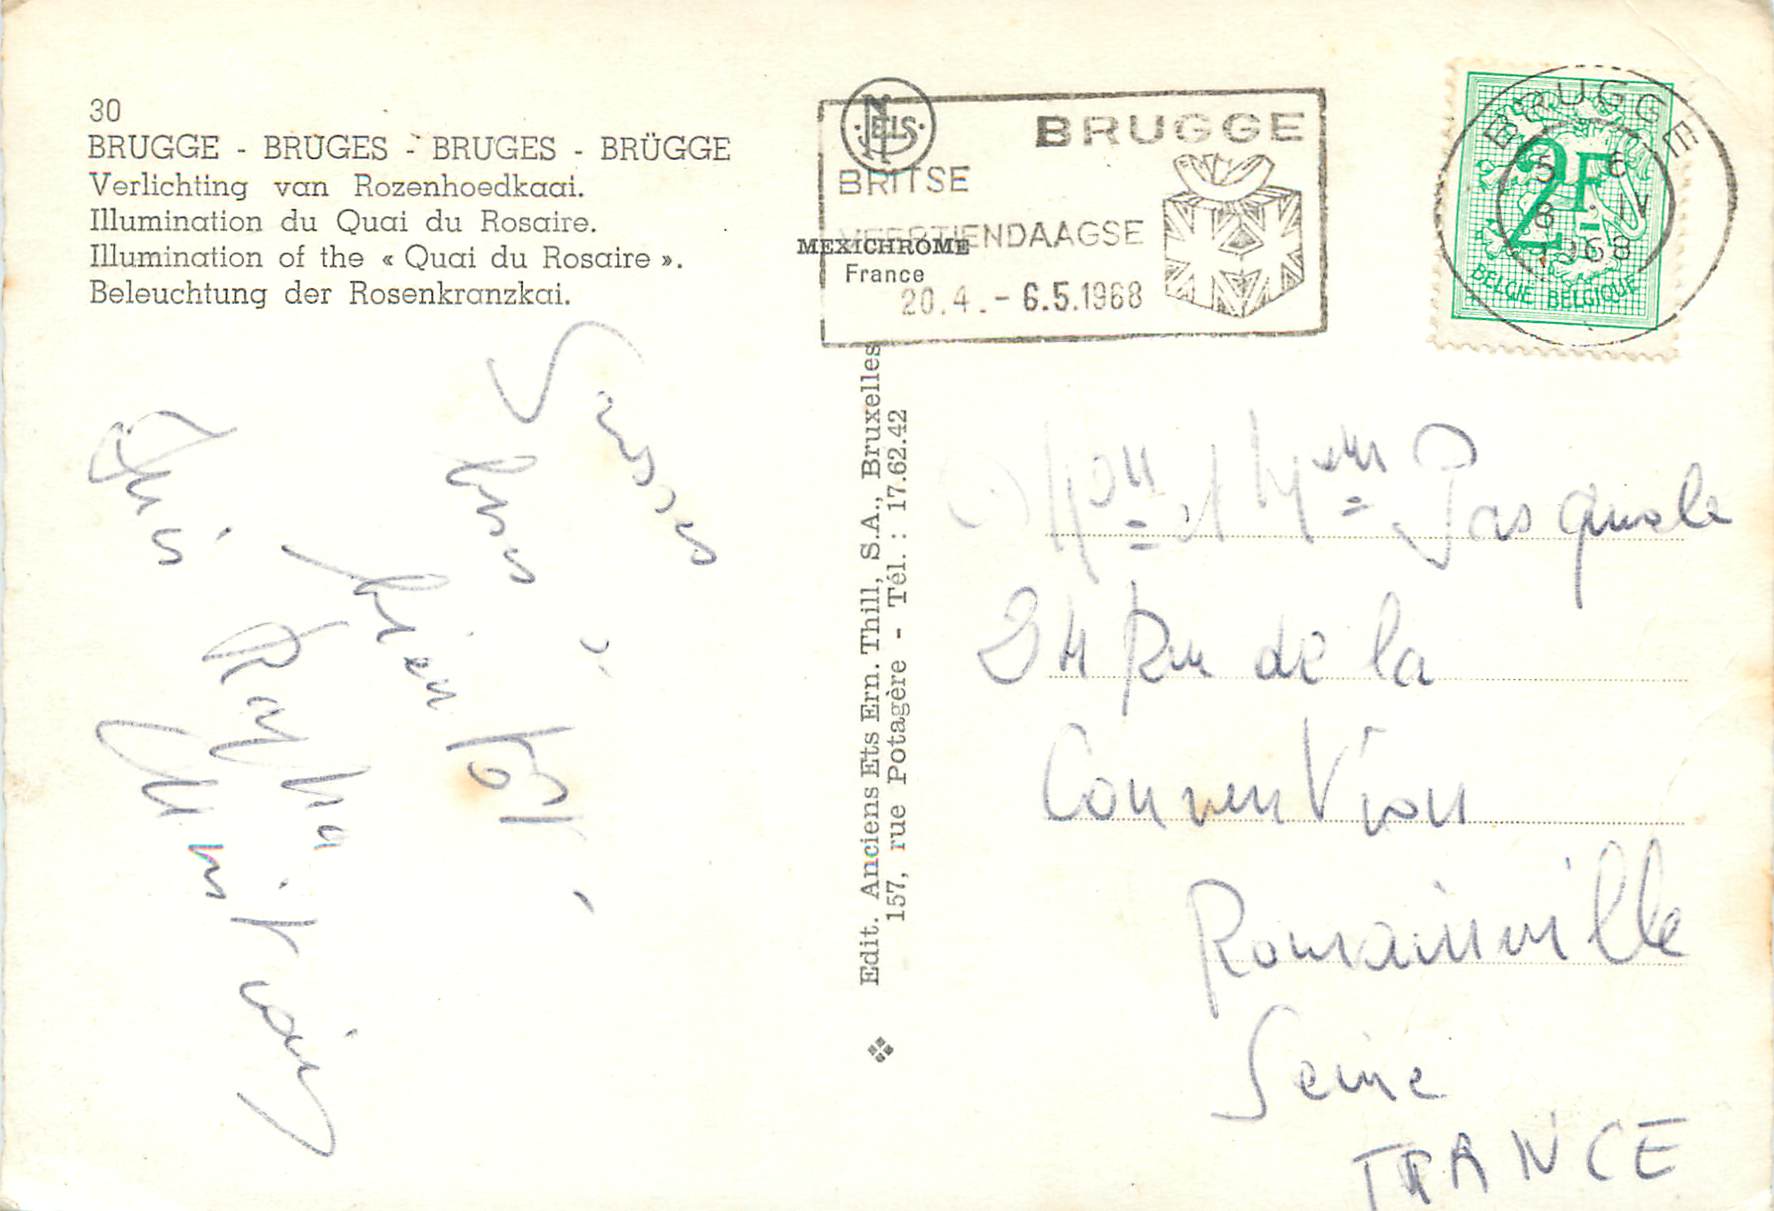 30
BRUGGE - BRUGES - BRUGES - BRÜGGE
Verlichting van Rozenhoedkaai.
Illumination du Quai du Rosaire.
Illumination of the « Quai du Rosaire ».
Beleuchtung der Rosenkranzkai.
NELS
BRUGGE
BRITSE
VEERTIENDAAGSE
20.4.-6.5.1968
MEXICHROME
France
BRUGGE
1968
2F
BELGIE BELGIQUE
Edit. Anciens Ets Ern. Thill, S.A., Bruxelles
157, rue Potagère - Tél. : 17.62.42
Grosses
bises
à
bientôt
Raypha
Mon et Mme Pasquale
24 Rue de la
Convention
Romainville
Seine
FRANCE